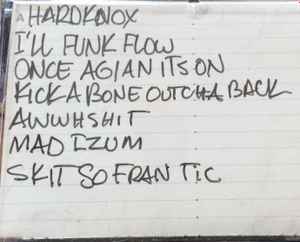 A HARDKNOX
I'LL FUNK FLOW
ONCE AGIAN ITS ON
KICK A BONE OUTCHA BACK
AWWHSHIT
MAD IZUM
SKIT SO FRAN TIC